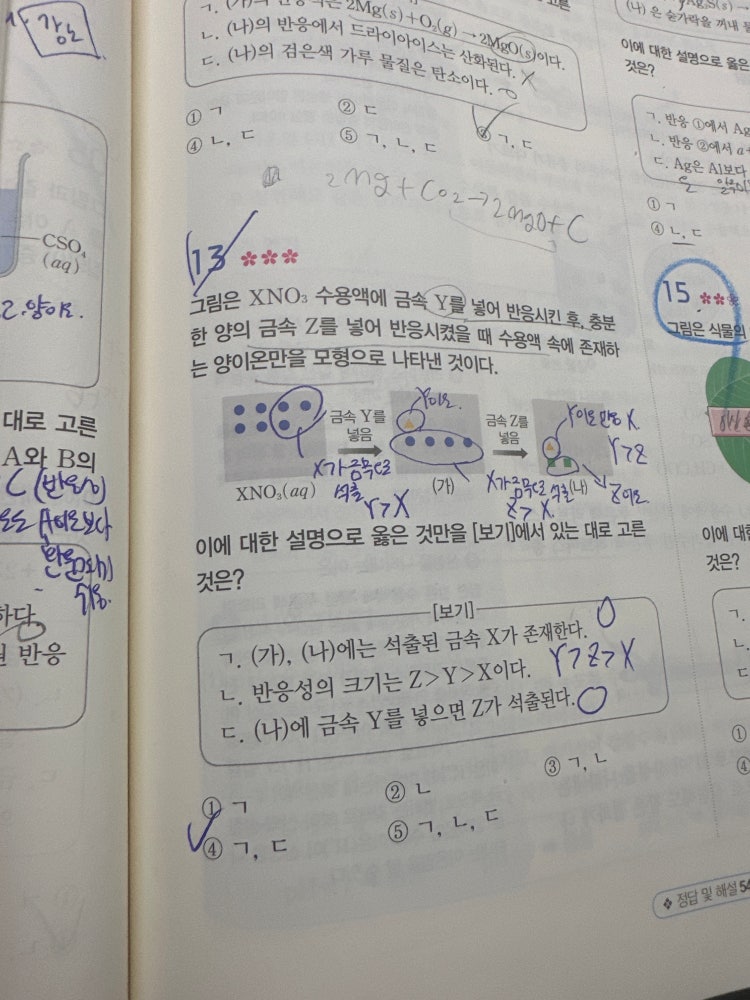 강노
CSO₄
(aq)
2. 양이오.
대로 고른
A와 B의
C (반응이
하다.
반응
2Mg(s)+O₂(g)→2MgO(s)이다.
ㄴ. (나)의 반응에서 드라이아이스는 산화된다. X
ㄷ. (나)의 검은색 가루 물질은 탄소이다. O
① ㄱ ② ㄷ ③ ㄱ, ㄷ
④ ㄴ, ㄷ ⑤ ㄱ, ㄴ, ㄷ
2Mg+CO₂→2MgO+C
13 ***
그림은 XNO₃ 수용액에 금속 Y를 넣어 반응시킨 후, 충분
한 양의 금속 Z를 넣어 반응시켰을 때 수용액 속에 존재하
는 양이온만을 모형으로 나타낸 것이다.
금속 Y를
넣음
Y이온.
금속 Z를
넣음
Y이온 반응 X
Y>Z
XNO₃(aq)
X가 금속으로
석출
Y>X
(가)
X가 금속으로
석출
Z>X.
(나)
Z이온
이에 대한 설명으로 옳은 것만을 [보기]에서 있는 대로 고른
것은?
[보기]
ㄱ. (가), (나)에는 석출된 금속 X가 존재한다. O
ㄴ. 반응성의 크기는 Z>Y>X이다. Y>Z>X
ㄷ. (나)에 금속 Y를 넣으면 Z가 석출된다. O
① ㄱ ② ㄴ ③ ㄱ, ㄴ
④ ㄱ, ㄷ ⑤ ㄱ, ㄴ, ㄷ
(나)은 숟가락을 꺼내
이에 대한 설명으로 옳은
것은?
ㄱ. 반응 ①에서 Ag
ㄴ. 반응 ②에서 a+
ㄷ. Ag은 Al보다
은
① ㄱ
④ ㄴ, ㄷ
15 ***
그림은 식물의
이에 대한
것은?
ㄱ.
ㄴ.
ㄷ
①
④
❖ 정답 및 해설 54